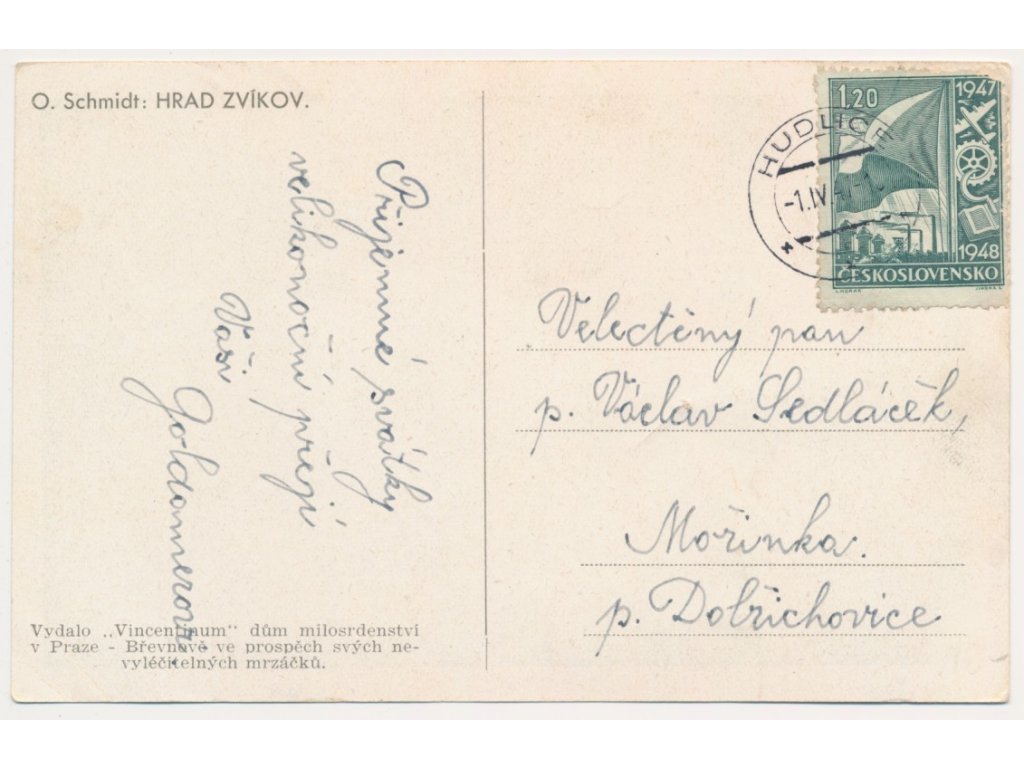 O. Schmidt: HRAD ZVÍKOV.
Příjemné svátky
velikonoční přejí
Vaši
Goldamerovi.
Vydalo „Vincentinum“ dům milosrdenství
v Praze - Břevnově ve prospěch svých ne-
vyléčitelných mrzáčků.
1,20
1947
1948
ČESKOSLOVENSKO
HUDLICE
-1.IV.
Velectěný pan
p. Václav Sedláček,
Mořinka.
p. Dobřichovice